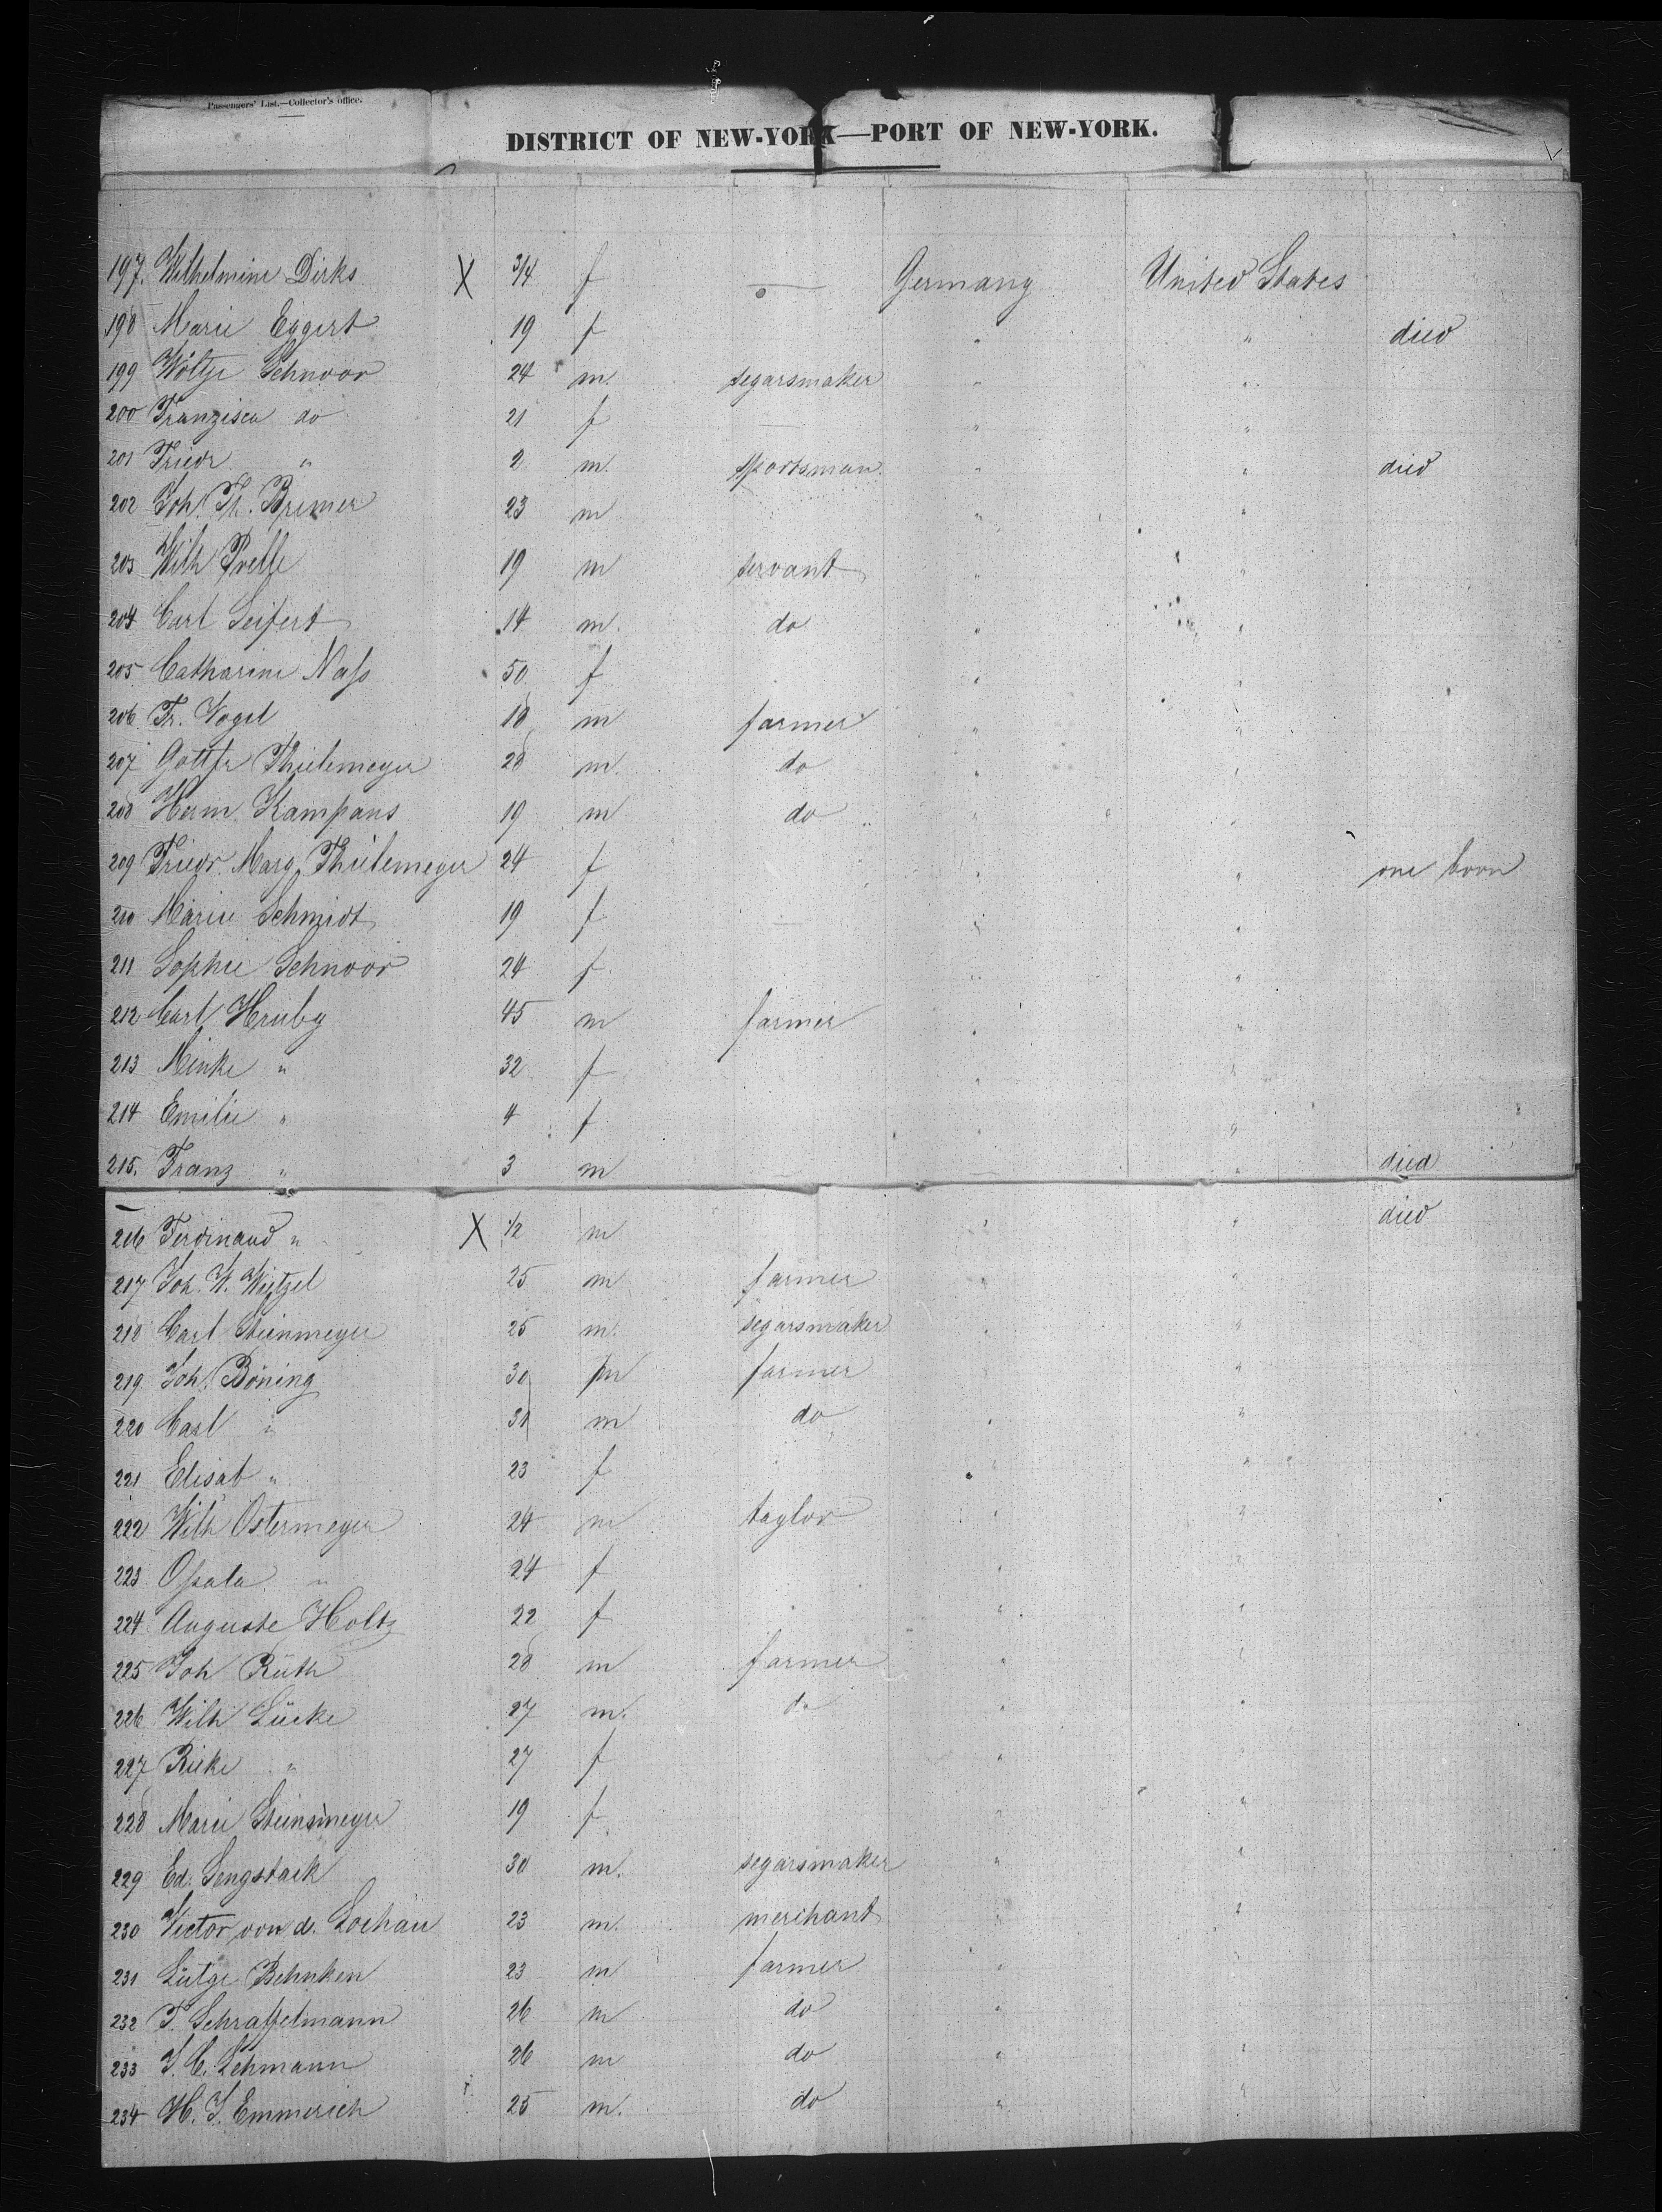 Passengers' List.—Collector's office.
DISTRICT OF NEW-YORK—PORT OF NEW-YORK.
197. Wilhelmine Dirks X 3/4 f — Germany United States
198 Marie Eggert 19 f " " died
199 Wöltje Schnoor 24 m. segarsmaker " "
200 Franzisca do 21 f " "
201 Friedr " 2 m. sportsman " " died
202 Joh. Fr. Bremer 23 m " "
203 Wilh Prelle 19 m servant " "
204 Carl Seifert 14 m. do " "
205 Catharine Nass 50 f " "
206 Fr. Vogel 18 m farmer " "
207 Gottfr Thielemeyer 28 m. do " "
208 Herm. Kampans 19 m do " "
209 Friedr. Marg. Thielemeyer 24 f " " one born
210 Marie Schmidt 19 f " "
211 Sophie Schnoor 24 f " "
212 Carl Hruby 45 m farmer " "
213 Minke " 32 f " "
214 Emilie " 4 f " "
215. Franz " 3 m " " died
216 Ferdinand " X 1/2 m " " died
217 Joh. W. Wietzel 25 m farmer " "
218 Carl Steinmeyer 25 m. segarsmaker " "
219 Joh. Böning 30 m farmer "
220 Carl " 31 m do " "
221 Elisab " 23 f " "
222 Wilh Ostermeyer 24 m taylor " "
223 " 24 f " "
224 Auguste Holtz 22 f " "
225 Joh Rüth 28 m farmer " "
226 Wilh Lücke 27 m. do " "
227 Rieke " 27 f " "
228 Marie Steinsmeyer 19 f " "
229 Ed. Sengstack 30 m. segarsmaker " "
230 Victor von d. Lochau 23 m. merchant " "
231 Lütge Behnken 23 m farmer " "
232 F. Schraffelmann 26 m do "
233 J. C. Lehmann 26 m do " "
234 H. J. Emmerich 25 m. do " "